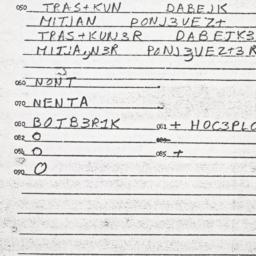 050 TPAS+KUN DABEJK
MITJAN PONJ3UEZ+
TPAS+KUN3R DABEJK3
MITJA,N3R PONJ3UEZ+3R
060 NONT
070 NENTA
080 BOTB3R1K 081 + HOC3PLO
082 O
084 O 085 +
090 O